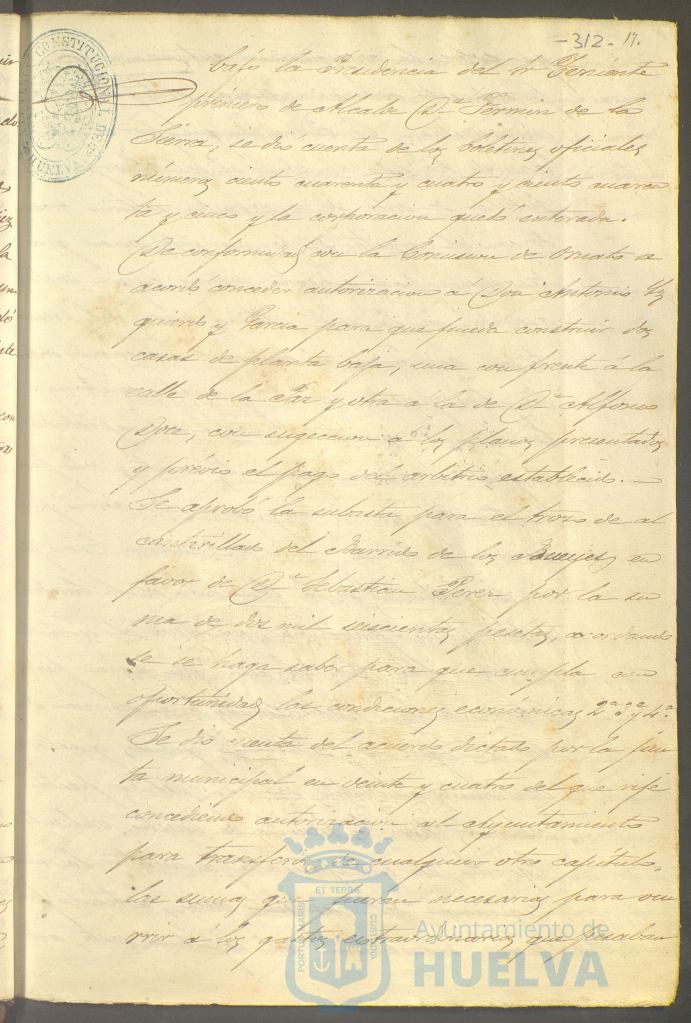 -312- 17.
CONSTITUCIONAL DE HUELVA
bajo la Presidencia del Sr Teniente
primero de Alcalde Dn Fermin de la
Sierra, se dió cuenta de los boletines oficiales
números ciento cuarenta y cuatro y ciento cuaren
ta y cinco y la corporacion quedó enterada.
De conformidad con la Comision de Ornato se
acordó conceder autorizacion á Don Antonio
y Garcia para que pueda construir dos
casas de planta baja, una con frente á la
calle de la Paz y otra a la de Dn Alfonso
Doce, con sugeccion a los planos presentados
y prévio el pago del arbitrio establecido. —
Se aprobó la subasta para el trozo de al
cantarillas del Barrio de los en
favor de Dn Sebastian Perez por la su
ma de dos mil seiscientas pesetas, acordando
se se haga saber para que cumpla con
oportunidad las condiciones económicas 2ª 3ª y 4ª.
Se dió cuenta del acuerdo dictado por la jun
ta municipal en veinte y cuatro del que rije
concediendo autorizacion al Ayuntamiento
para transferir de cualquier otro capítulo,
las sumas que fueran necesarias para ocu
rrir á los gastos extraordinarios que pesaban
PORTUS MARIS ET TERRAE CUSTODIA
Ayuntamiento de
HUELVA